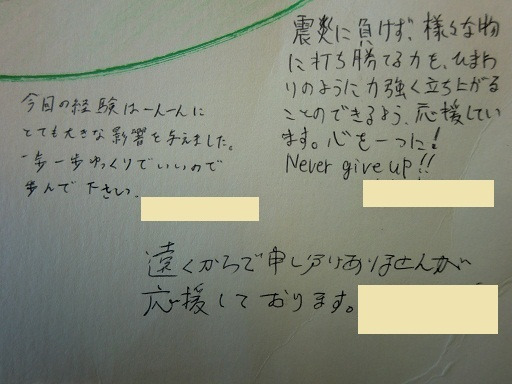 震災に負けず、様々な物
に打ち勝てる力を、ひまわ
りのように力強く立ち上がる
ことのできるよう、応援してい
ます。心を一つに!
Never give up!!
今回の経験は一人一人に
とても大きな影響を与えました。
一歩一歩ゆっくりでいいので
歩んで下さい。
遠くからで申し訳ありませんが
応援しております。